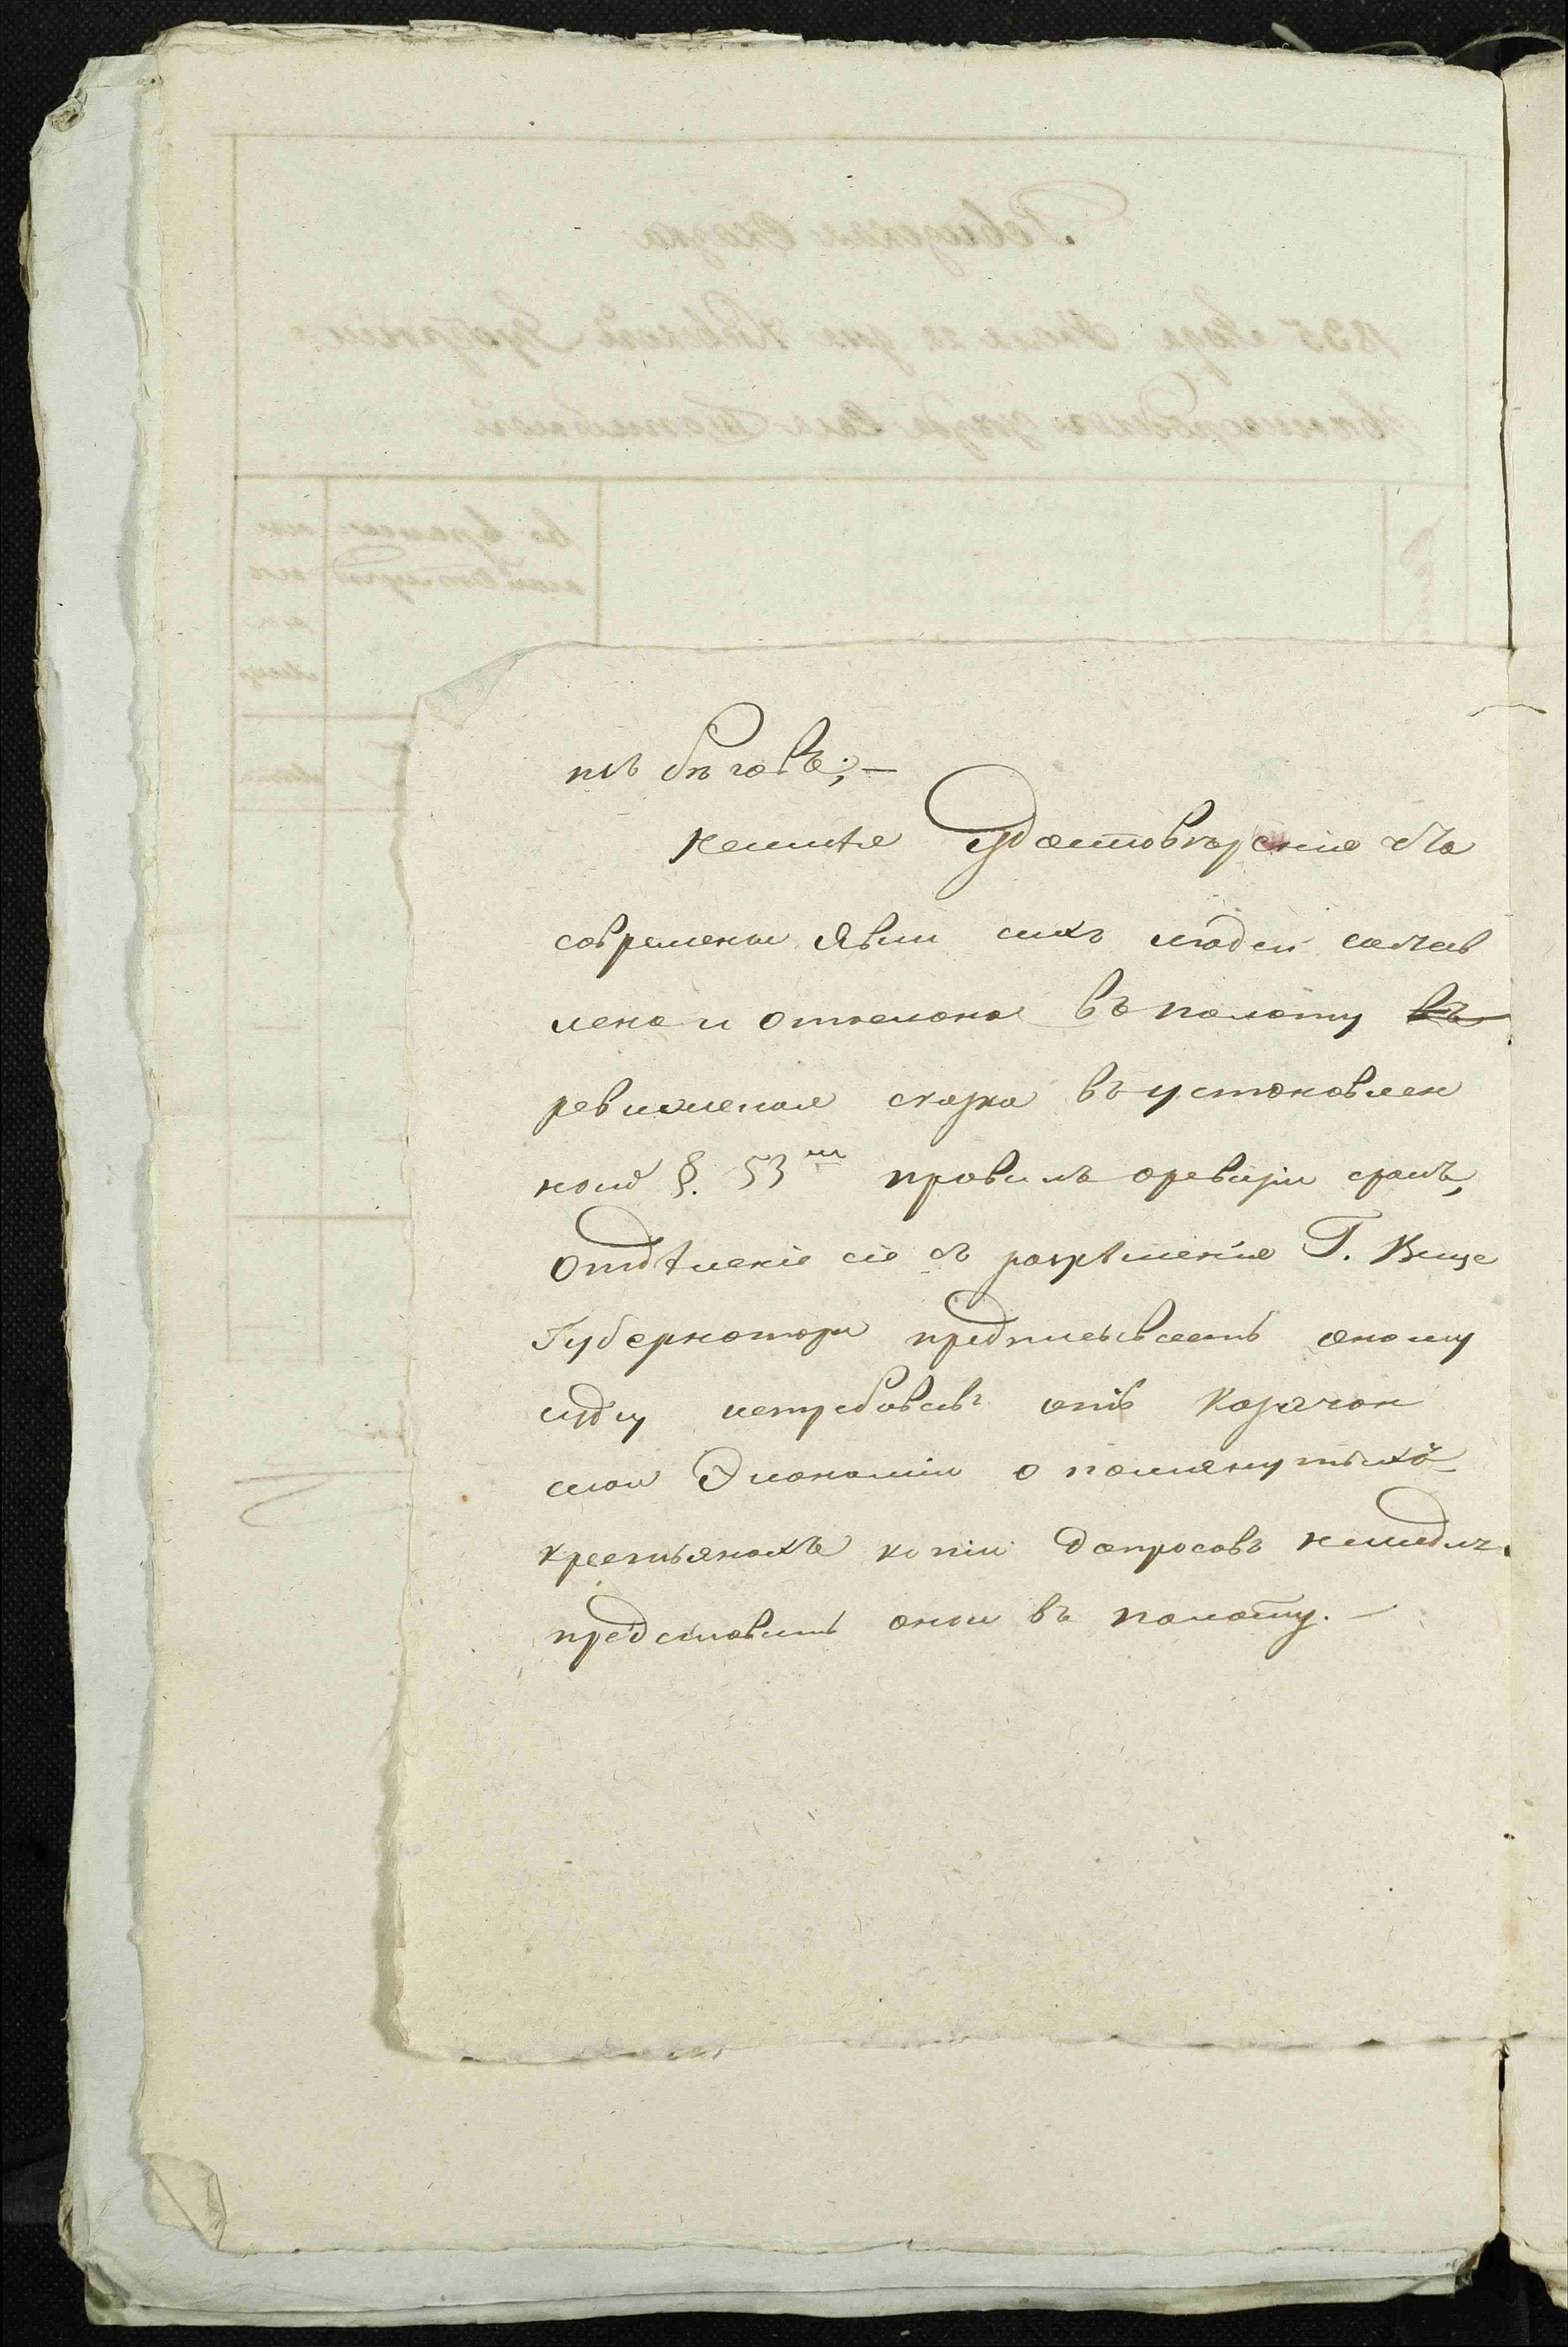 изъ бѣговъ; —
Удостовѣреніе Что
современи явки сихъ людей состав
лена и отослана въ палату въ
ревижская сказка въ установлен
ной §. 53м правилъ оревизіи срокъ,
Отдѣленіе сіе съ разрѣшенія Г. Вице
Губернатора предписываетъ оному
суду истребовавъ отъ Корячок
ской Экономіи о помянутыхъ
крестьянахъ копіи допросовъ
представить оныи въ палату. —